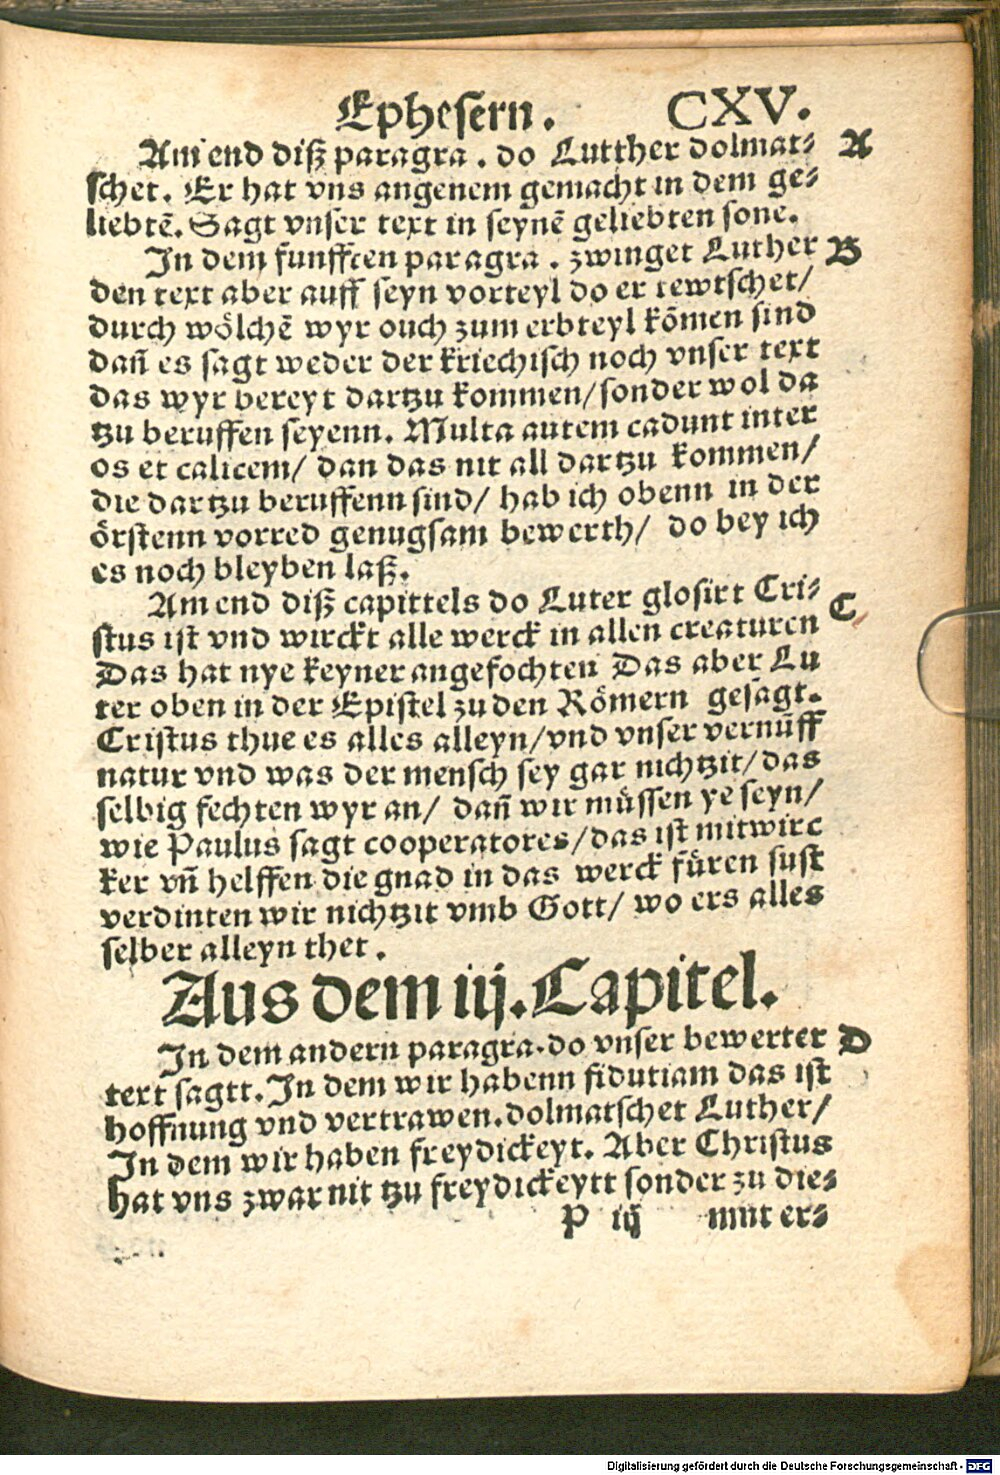 Ephesern. CXV.
Am end diß paragra. do Lutther dolmat⸗ A
schet. Er hat vns angenem gemacht in dem ge⸗
liebtē. Sagt vnser text in seynē geliebten sone.
In dem funfften paragra. zwinget Luther B
den text aber auff seyn vorteyl do er tewtschet/
durch wölchē wyr ouch zum erbteyl kōmen sind
dañ es sagt weder der kriechisch noch vnser text
das wyr bereyt dartzu kommen/sonder wol da
tzu beruffen seyenn. Multa autem cadunt inter
os et calicem/ dan das nit all dartzu kommen/
die dartzu beruffenn sind/ hab ich obenn in der
örstenn vorred genugsam bewerth/ do bey ich
es noch bleyben laß.
Am end diß capittels do Luter glosirt Cri⸗ C
stus ist vnd wirckt alle werck in allen creaturen
Das hat nye keyner angefochten Das aber Lu
ter oben in der Epistel zu den Römern gesagt.
Cristus thue es alles alleyn/vnd vnser vernūff
natur vnd was der mensch sey gar nichtzit/das
selbig fechten wyr an/ dañ wir müssen ye seyn/
wie Paulus sagt cooperatores/das ist mitwirc
ker vñ helffen die gnad in das werck füren sust
verdinten wir nichtzit vmb Gott/ wo ers alles
selber alleyn thet.
Aus dem iij. Capitel.
In dem andern paragra. do vnser bewerter D
text sagtt. In dem wir habenn fidutiam das ist
hoffnung vnd vertrawen. dolmatschet Luther/
In dem wir haben freydickeyt. Aber Christus
hat vns zwar nit tzu freydickeytt sonder zu die⸗
P iij mut er⸗
Digitalisierung gefördert durch die Deutsche Forschungsgemeinschaft - DFG